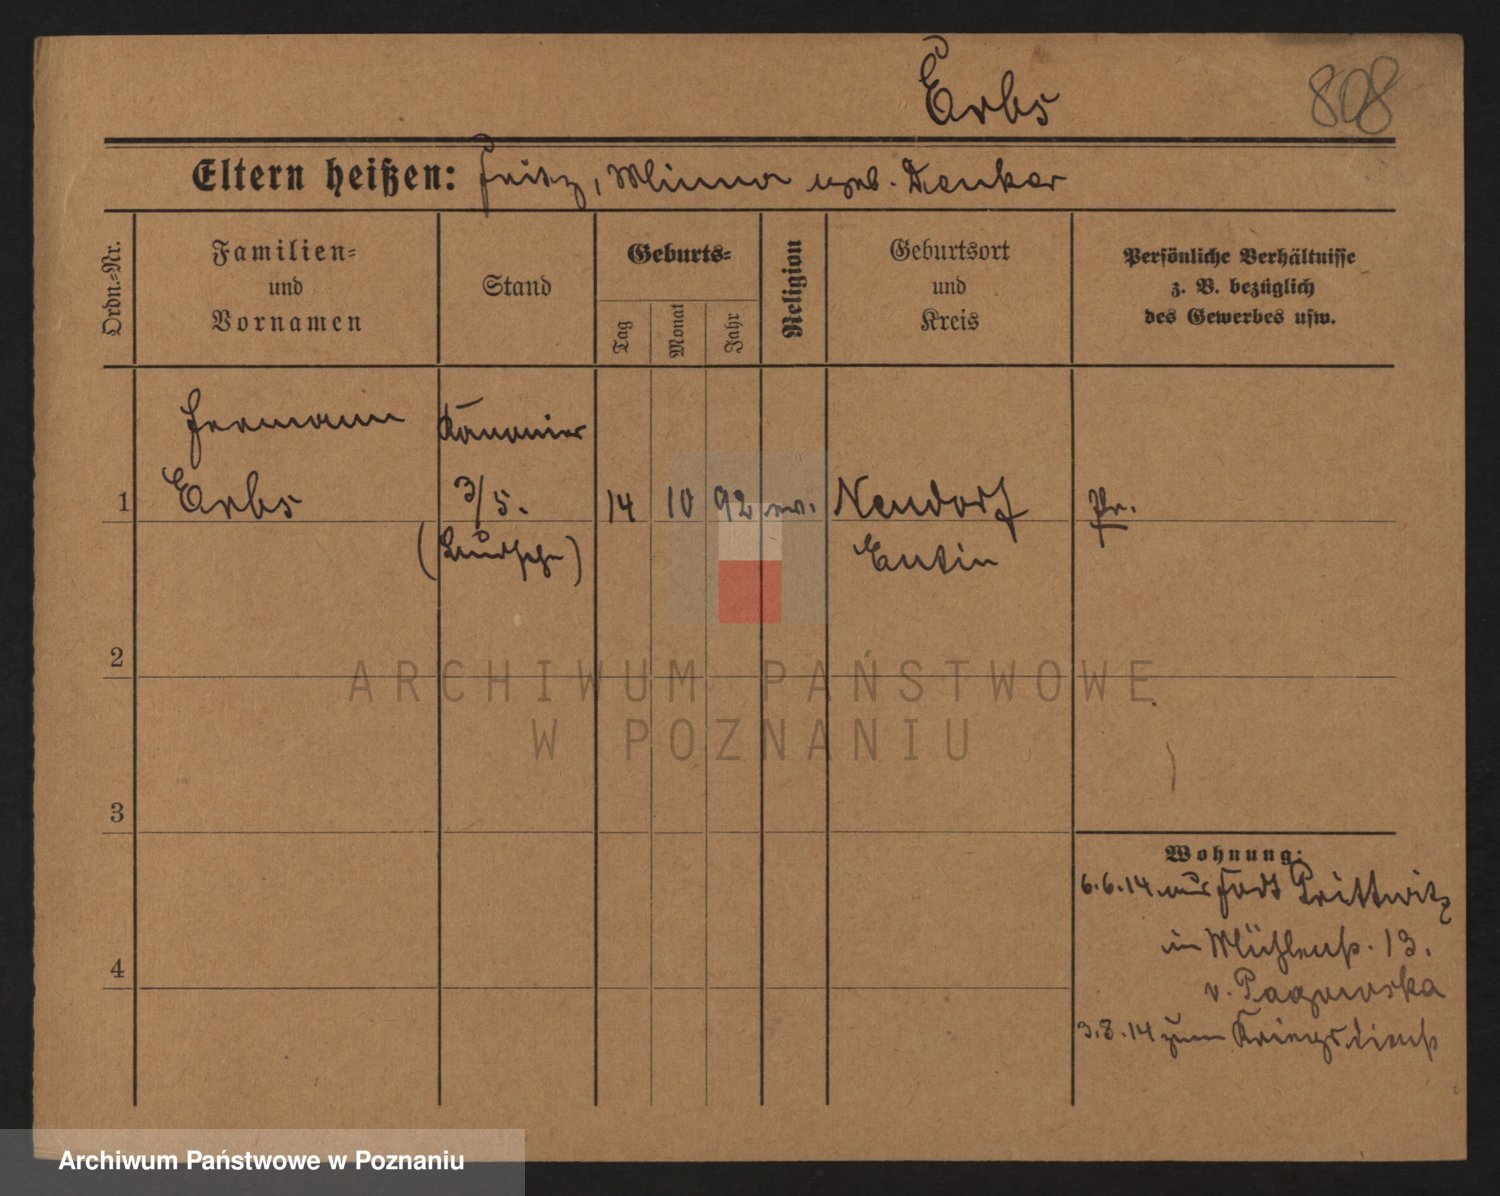 Erbs
808
Eltern heißen: Fritz, Minna geb. Denker
Ordn.-Nr.
Familien-
und
Vornamen
Stand
Geburts-
Tag
Monat
Jahr
Religion
Geburtsort
und
Kreis
Persönliche Verhältnisse
z. B. bezüglich
des Gewerbes usw.
Hermann
Kanonier
1
Erbs
3/5.
14
10
92
ev.
Neudorf
Pr.
Eutin
2
3
4
Wohnung:
6.6.14 aus Fort Prittwitz
in Mühlenst. 13.
v. Pagowska
3.8.14 zum Kriegsdienst
ARCHIWUM PAŃSTWOWE
W POZNANIU
Archiwum Państwowe w Poznaniu